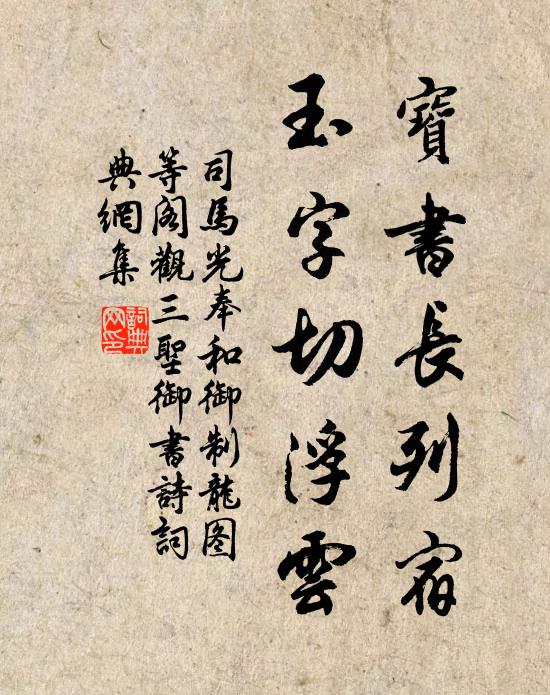 寶書長列宿
玉字切浮雲
司馬光奉和御制龍图
等阁觀三聖御書詩詞
典網集
詞典網印